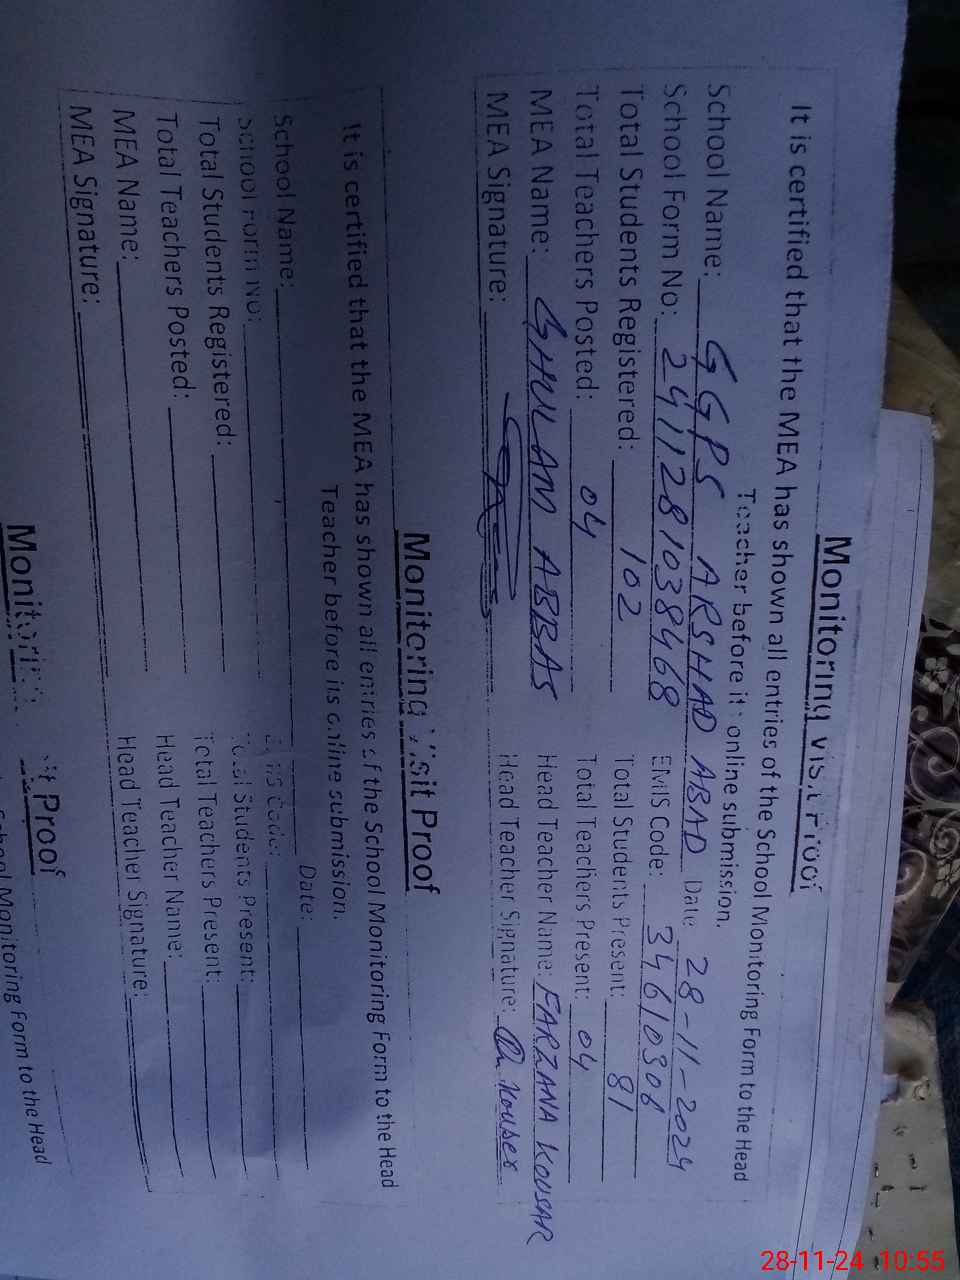 Monitoring Visit Proof
It is certified that the MEA has shown all entries of the School Monitoring Form to the Head
Teacher before its online submission.
School Name: GGPS ARSHAD ABAD Date: 28-11-2024
School Form No: 2411281038468 EMIS Code: 34610308
Total Students Registered: 102 Total Students Present: 81
Total Teachers Posted: 04 Total Teachers Present: 04
MEA Name: GHULAM ABBAS Head Teacher Name: FARZANA KOUSAR
MEA Signature: Head Teacher Signature:
Monitoring Visit Proof
It is certified that the MEA has shown all entries of the School Monitoring Form to the Head
Teacher before its online submission.
School Name: Date:
School Form No: Emis Code:
Total Students Registered: Total Students Present:
Total Teachers Posted: Total Teachers Present:
MEA Name: Head Teacher Name:
MEA Signature: Head Teacher Signature:
Monitoring Visit Proof
School Monitoring Form to the Head
28-11-24 10:55